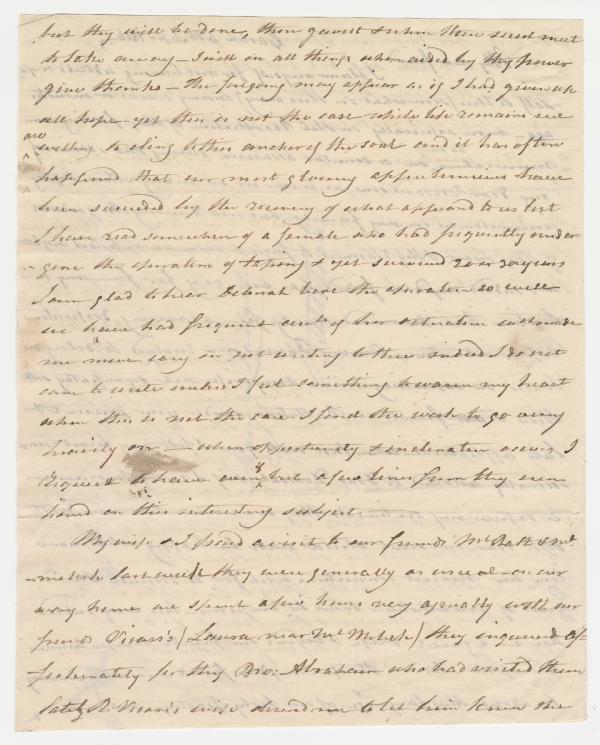 but thy will be done, thou gavest & when thou seest meet
to take away – I will in all things when aided by thy power
give thanks – the forgoing may appear as if I had given up
all hope – yet this is not the case while life remains we
are
willing to cling to this anchor of the soul and it has often
happened that our most gloomy apprehensions have
been succeeded by the recovery of what appeard to us lost
I have read somewhere of a female who had frequently under
-gone the operation of taping & yet survived 20 or 30 years
I am glad to hear Deborah bore the operation so well
we have had frequent accts of her situation wch made
me more easy in not writing to thee indeed I do not
care to write unless I feel something to warm my heart
when this is not the case I find the work to go very
heavily on – when opportunity & inclination occurs I
request to have even but a few lines from thy own
hand on this interesting subject –
My wife & I paid a visit to our friends & Mt
last week they were generally as usual – on our
way home we spent a few hours very agreably with our
friends (Laura near Mt ) they inquired af=
fectionately for thy Bro: Abraham who had visited them
lately R. wife desired me to let him know the